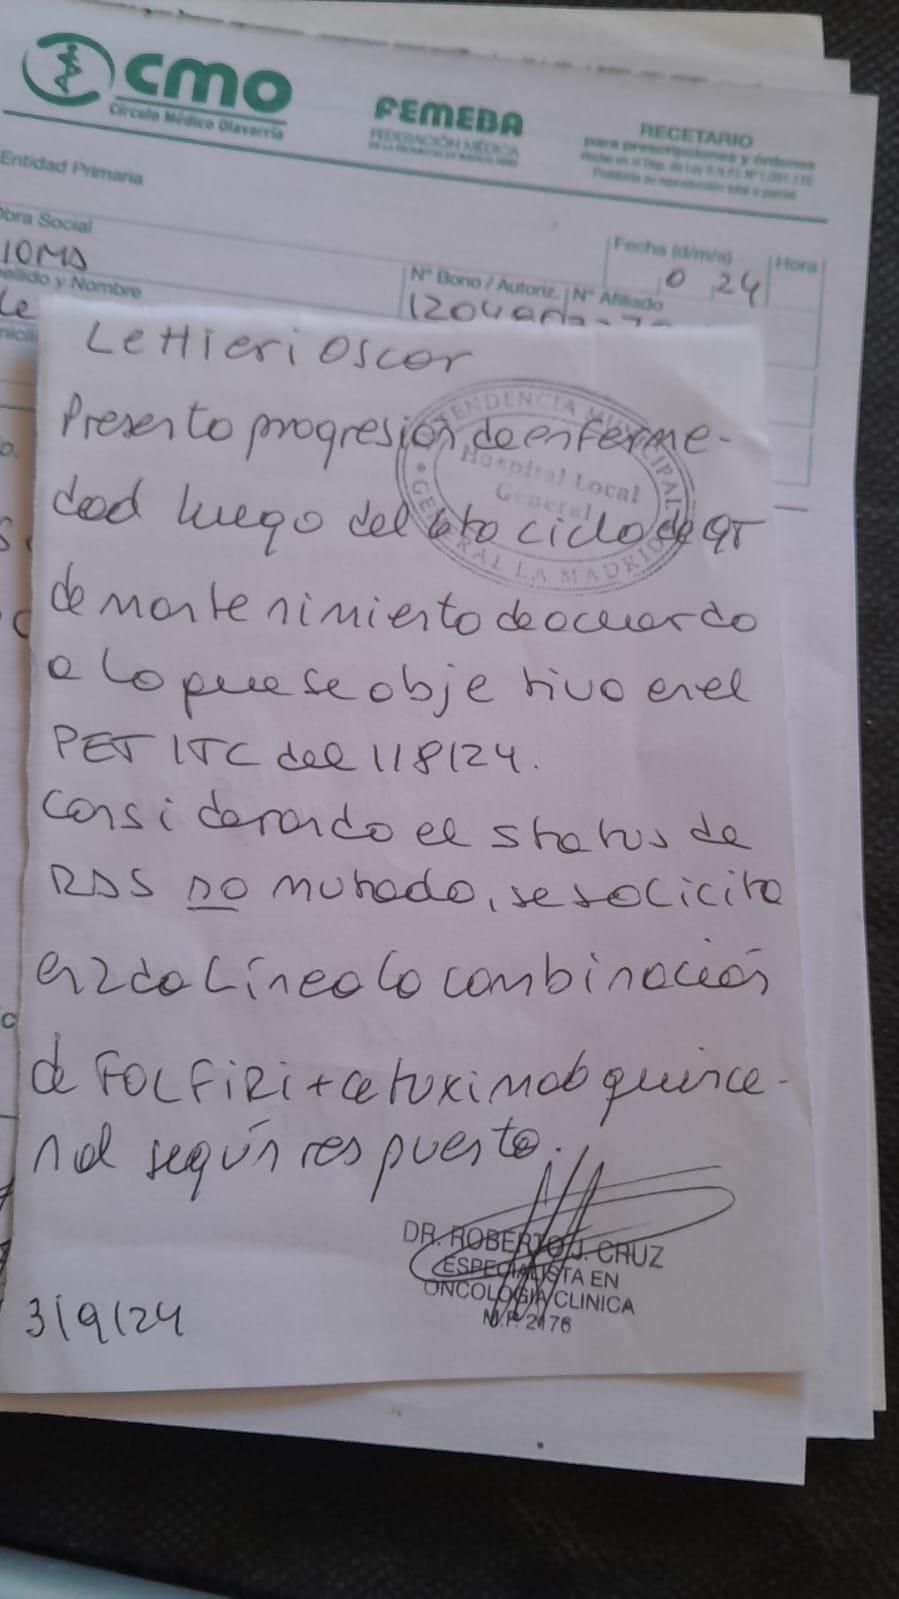 CMO
Círculo Médico Olavarría
FEMEBA
FEDERACIÓN MÉDICA
RECETARIO
para prescripciones y órdenes
Entidad Primaria
Obra Social
IOMA
Fecha (d/m/a)
Hora
0 24
Nº Bono / Autoriz.
Nº Afiliado
ellido y Nombre
Le
Lettieri Oscar
Presento progresión de enferme-
dad luego del 6to ciclo de QT
de mantenimiento de acuerdo
a lo que se objetivo en el
PET/TC del 1/8/24.
Considerando el status de
RAS no mutado, se solicita
en 2da Línea la combinación
de FOLFIRI + cetuximab quince-
nal según respuesta.
INTENDENCIA MUNICIPAL
Hospital Local
General
GENERAL LA MADRID
DR. ROBERTO J. CRUZ
ESPECIALISTA EN
ONCOLOGIA CLINICA
M.P. 2176
3/9/24